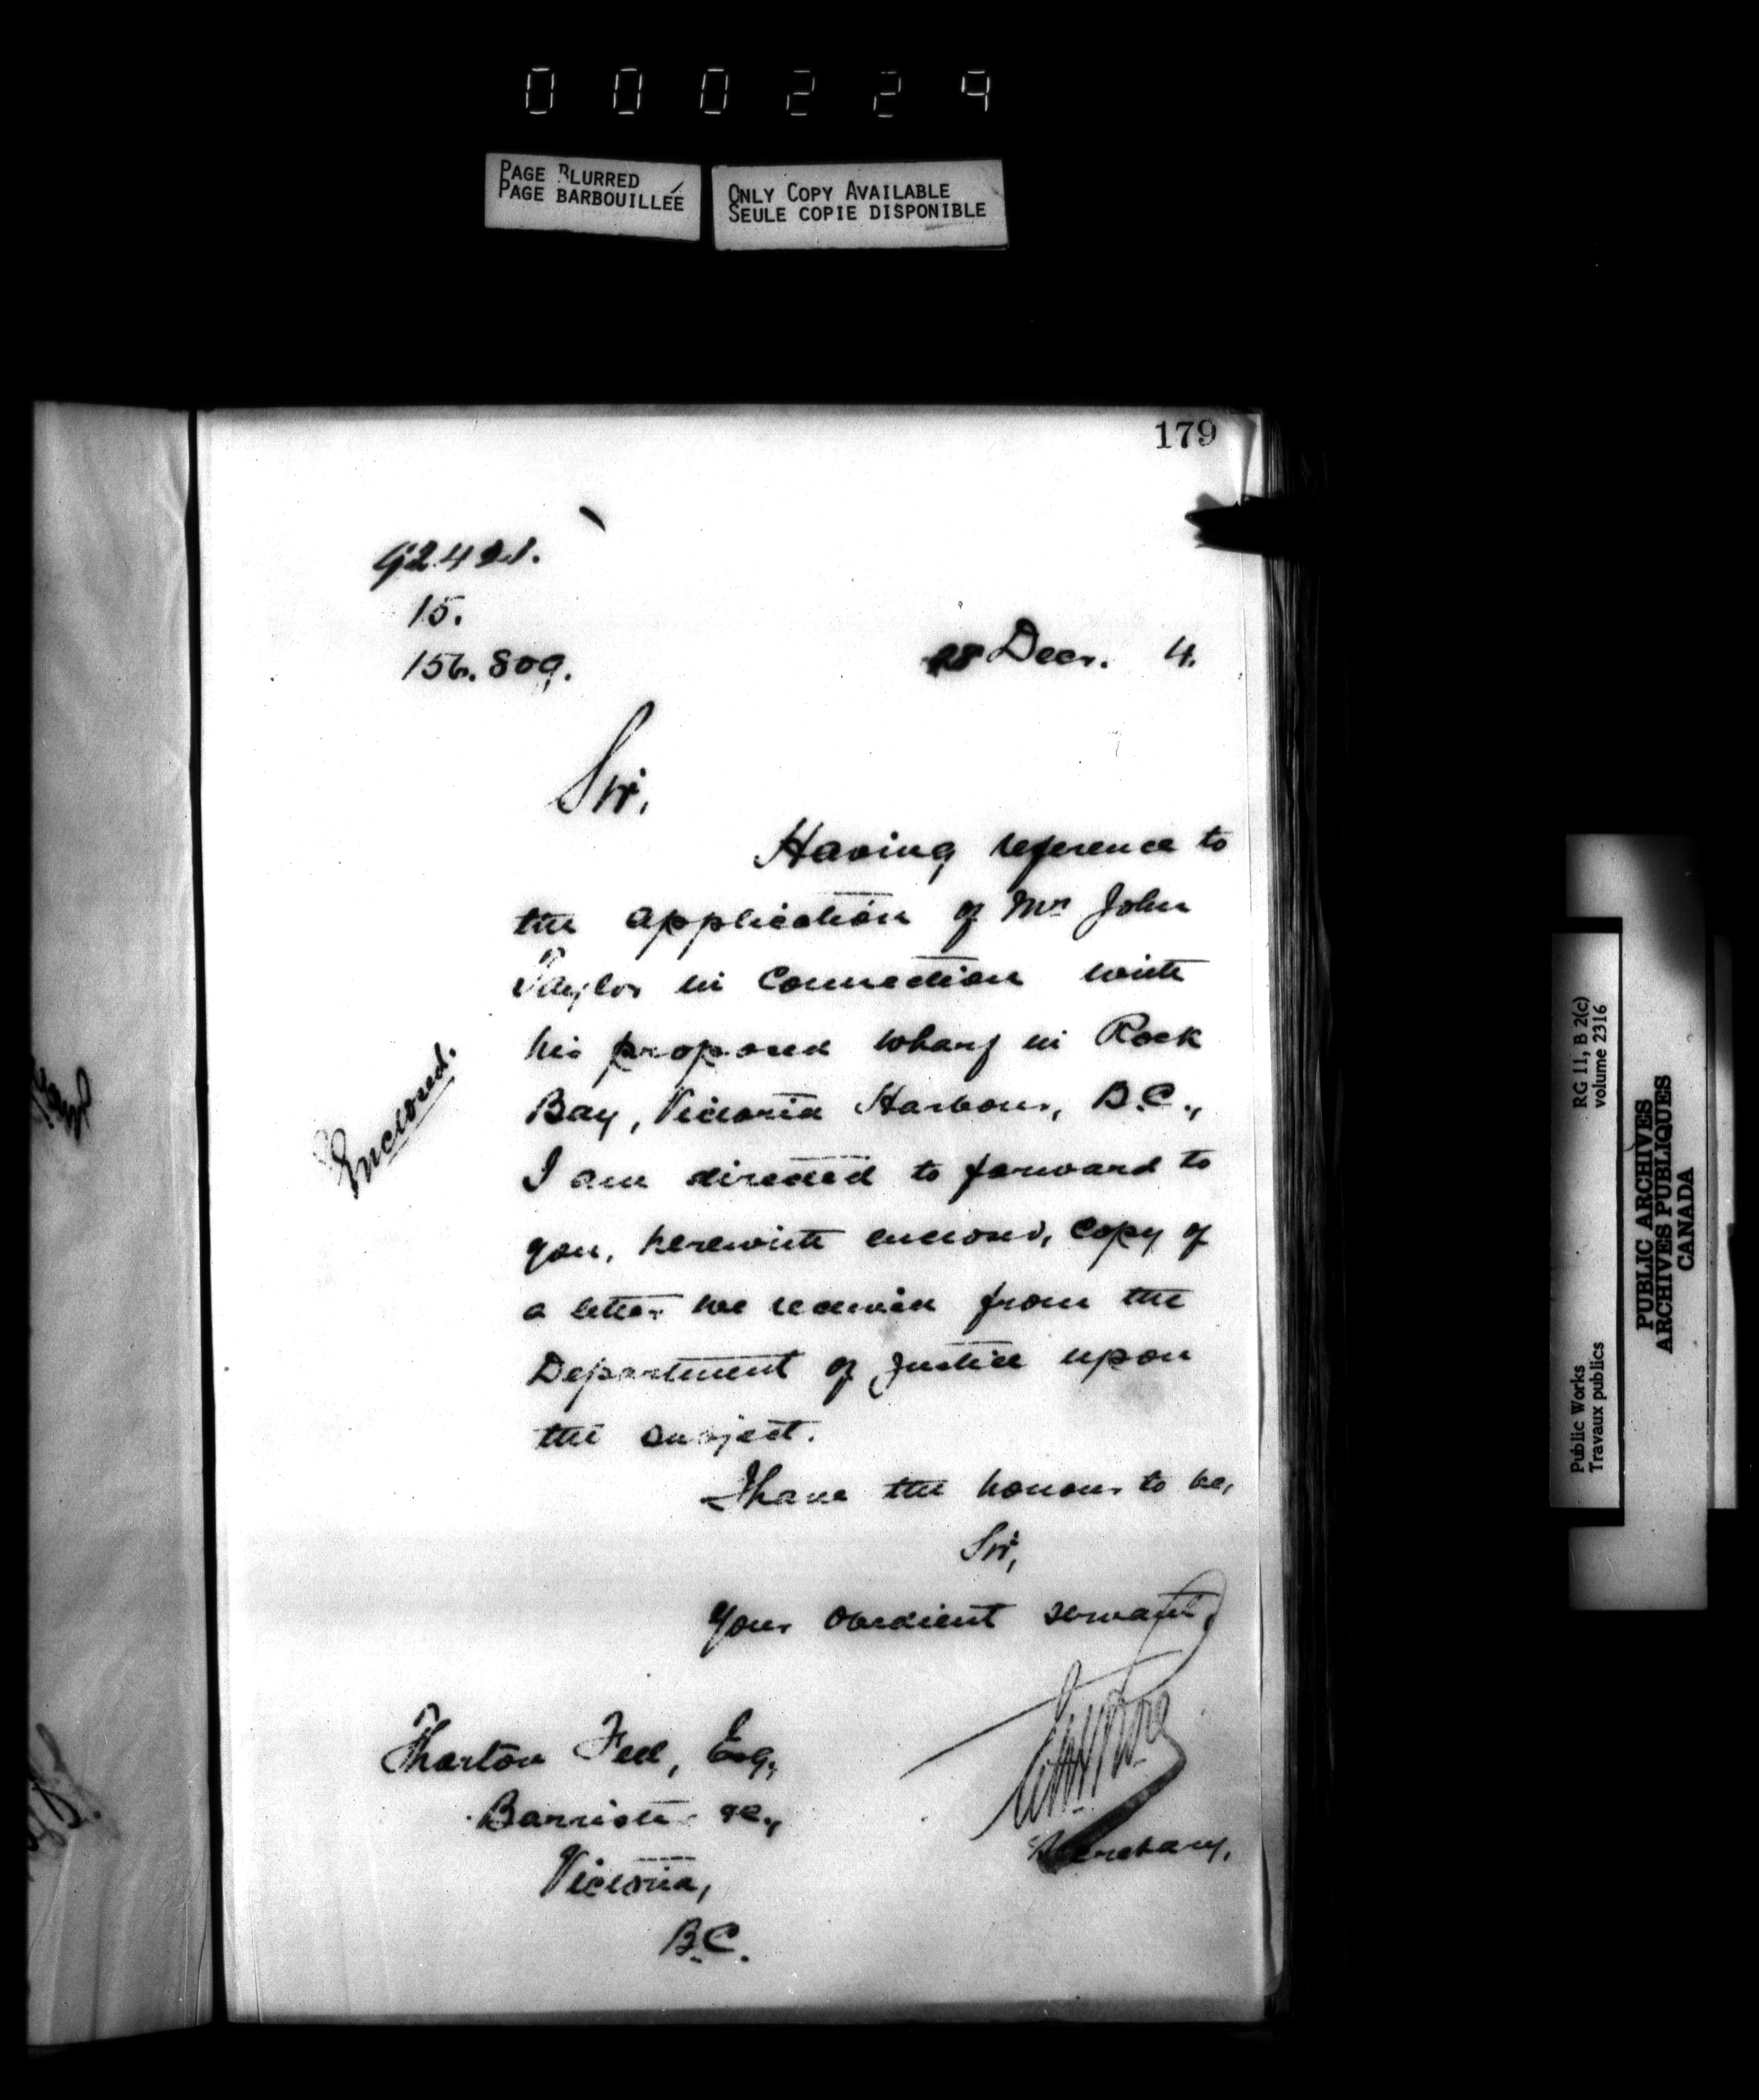 000229
PAGE BLURRED
PAGE BARBOUILLÉE
ONLY COPY AVAILABLE
SEULE COPIE DISPONIBLE
179
15.
156.809.
28 Decr. 4.
Sir,
Having reference to
the application of Mr John
Taylor in connection with
his proposed wharf in Rock
Bay, Victoria Harbour, B.C.,
Enclosed.
I am directed to forward to
you, herewith enclosed, copy of
a letter we received from the
Department of Justice upon
the subject.
I have the honour to be,
Sir,
Your obedient servant,
Secretary.
Fell, Esq.,
Barrister &c.,
Victoria,
B.C.
Public Works
Travaux publics
RG 11, B 2(c)
volume 2316
PUBLIC ARCHIVES
ARCHIVES PUBLIQUES
CANADA